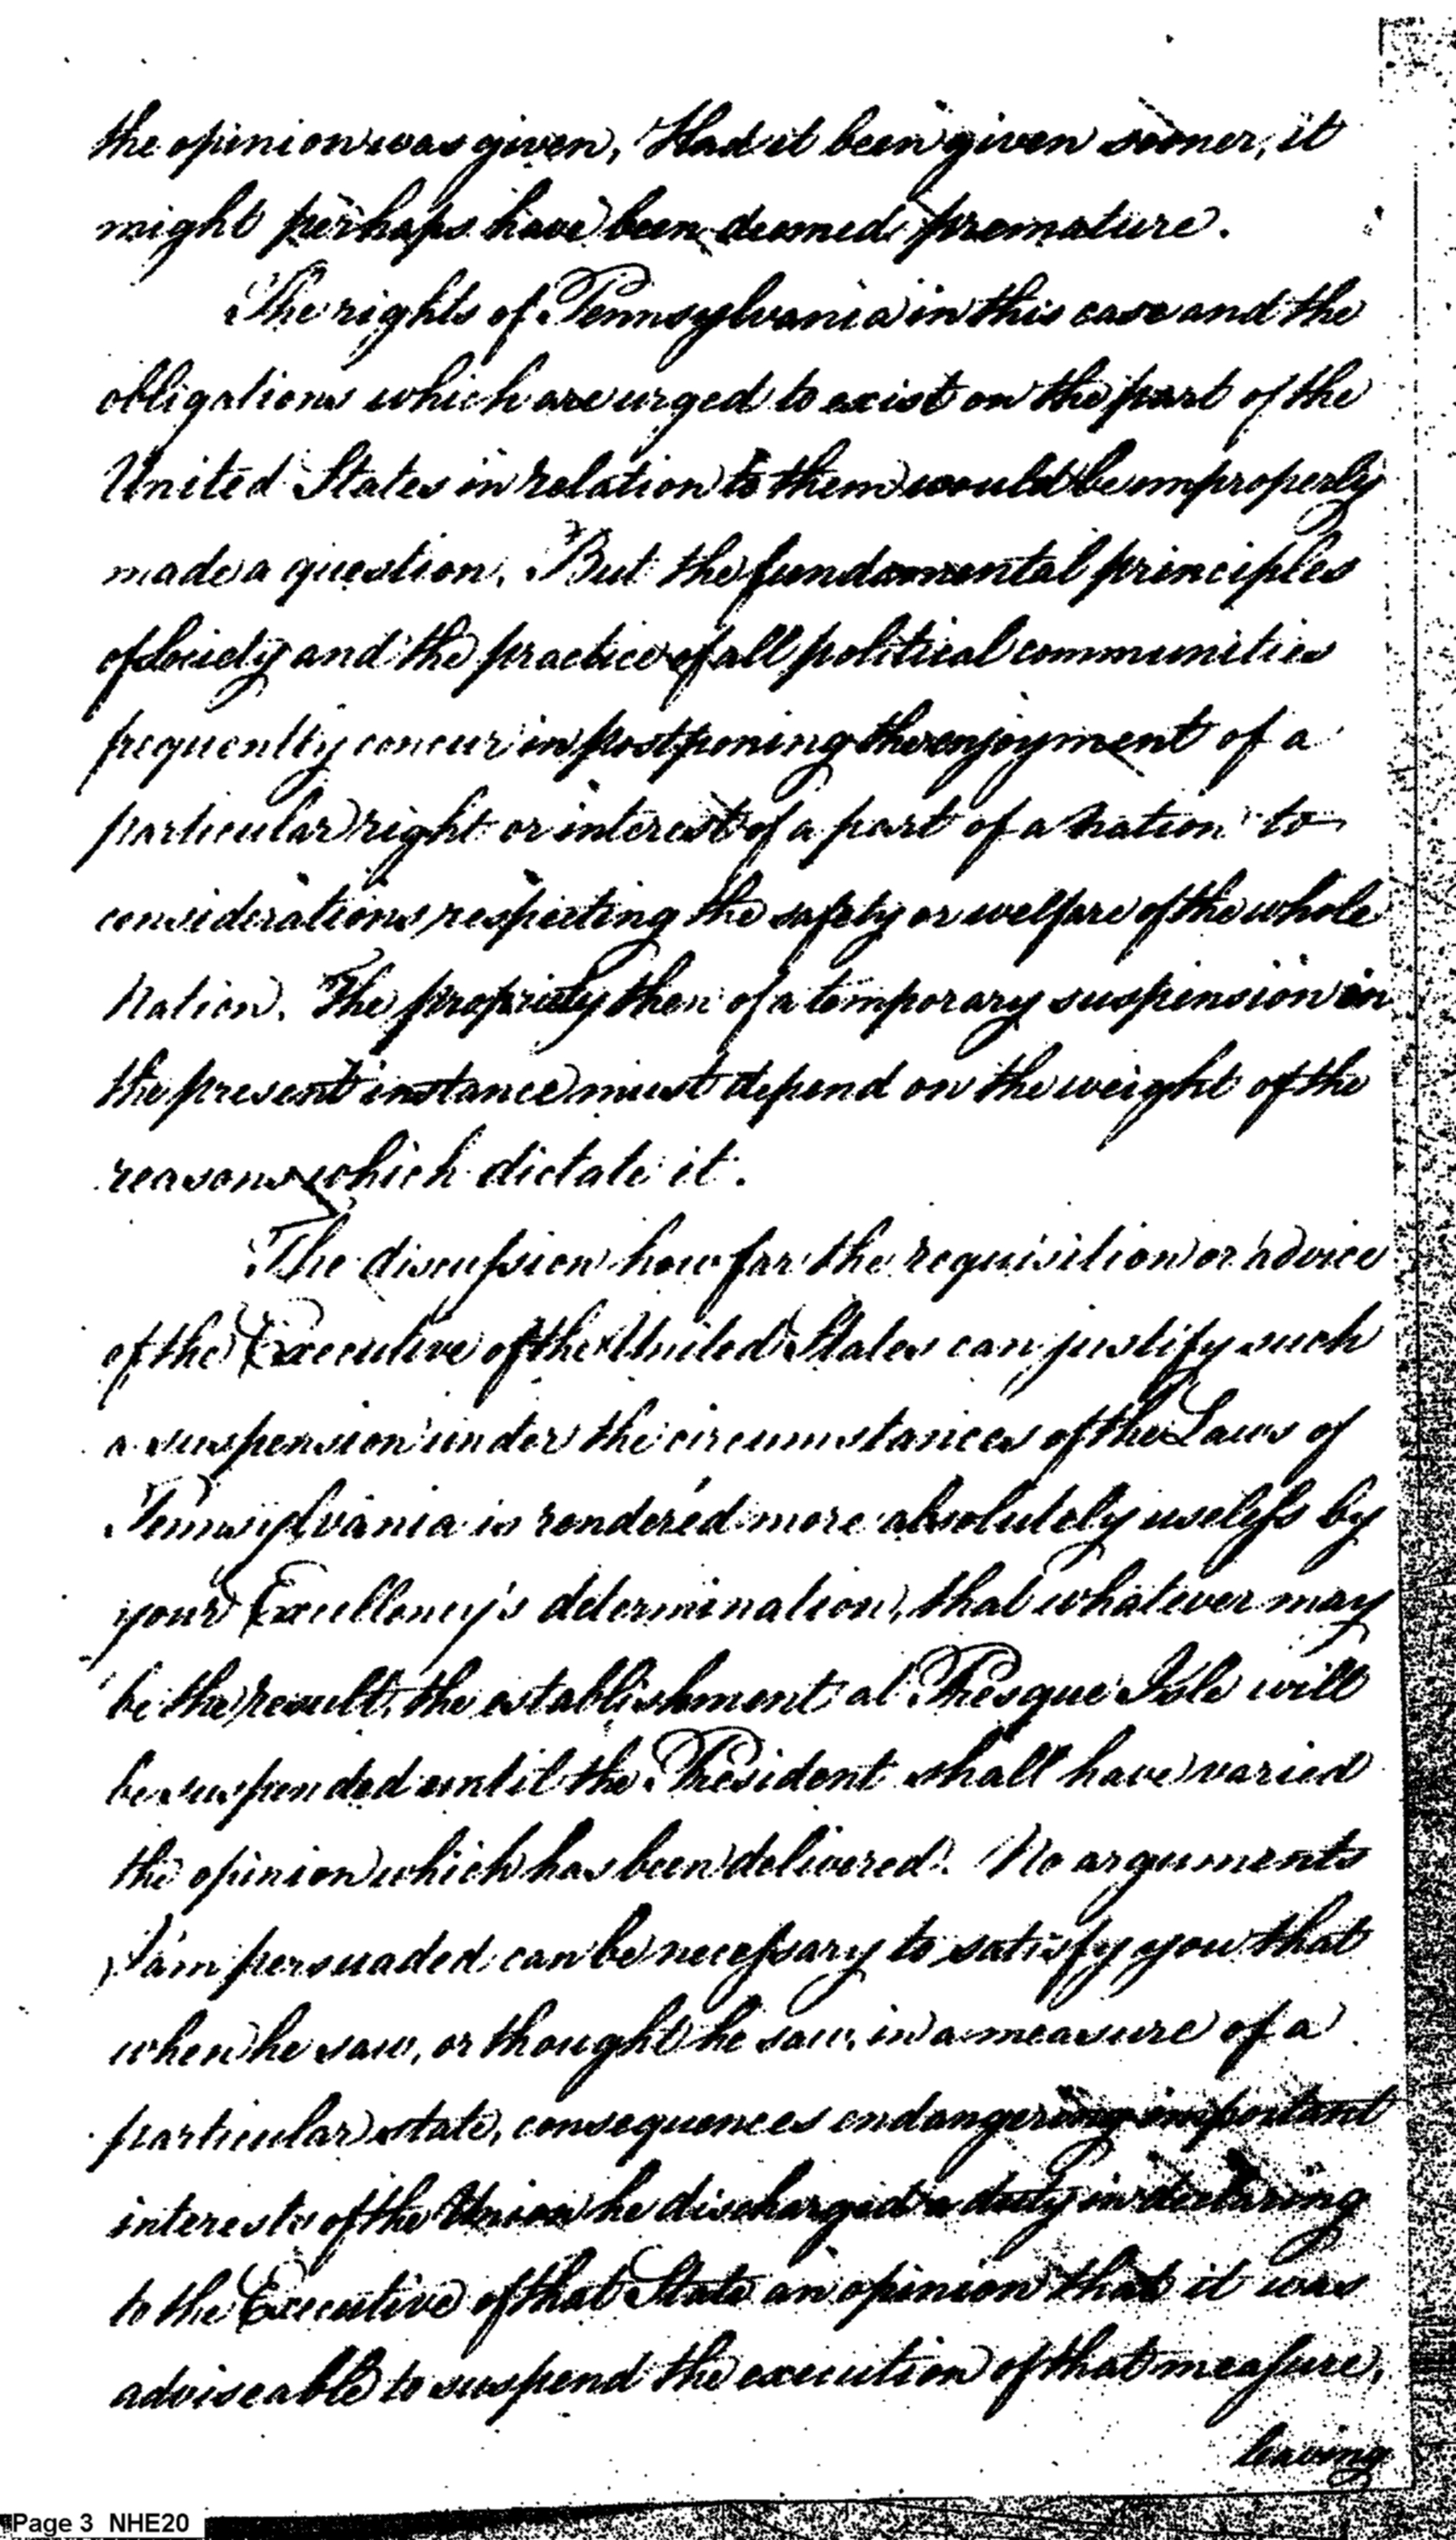 the opinion was given, Had it been given sooner, it
might perhaps have been deemed premature.
The rights of Pennsylvania in this case and the
obligations which are urged to exist on the part of the
United States in relation to them would be improperly
made a question. But the fundamental principles
of Society and the practice of all political communities
frequently concur in postponing the enjoyment of a
particular right or interest of a part of a Nation to
considerations respecting the safety or welfare of the whole
Nation. The propriety then of a temporary suspension in
the present instance must depend on the weight of the
reasons which dictate it.
The discussion how far the requisition or advice
of the Executive of the United States can justify such
a suspension under the circumstances of the Laws of
Pennsylvania is rendered more absolutely useless by
your Excellency's determination, that whatever may
be the result, the establishment at Presque Isle will
be suspended until the President shall have varied
the opinion which has been delivered. No arguments
I am persuaded can be necessary to satisfy you that
when he saw, or thought he saw, in a measure of a
particular state, consequences endangering important
interests of the Union he discharged a duty in declaring
to the Executive of that State an opinion that it was
adviseable to suspend the execution of that measure,
leaving
Page 3 NHE20